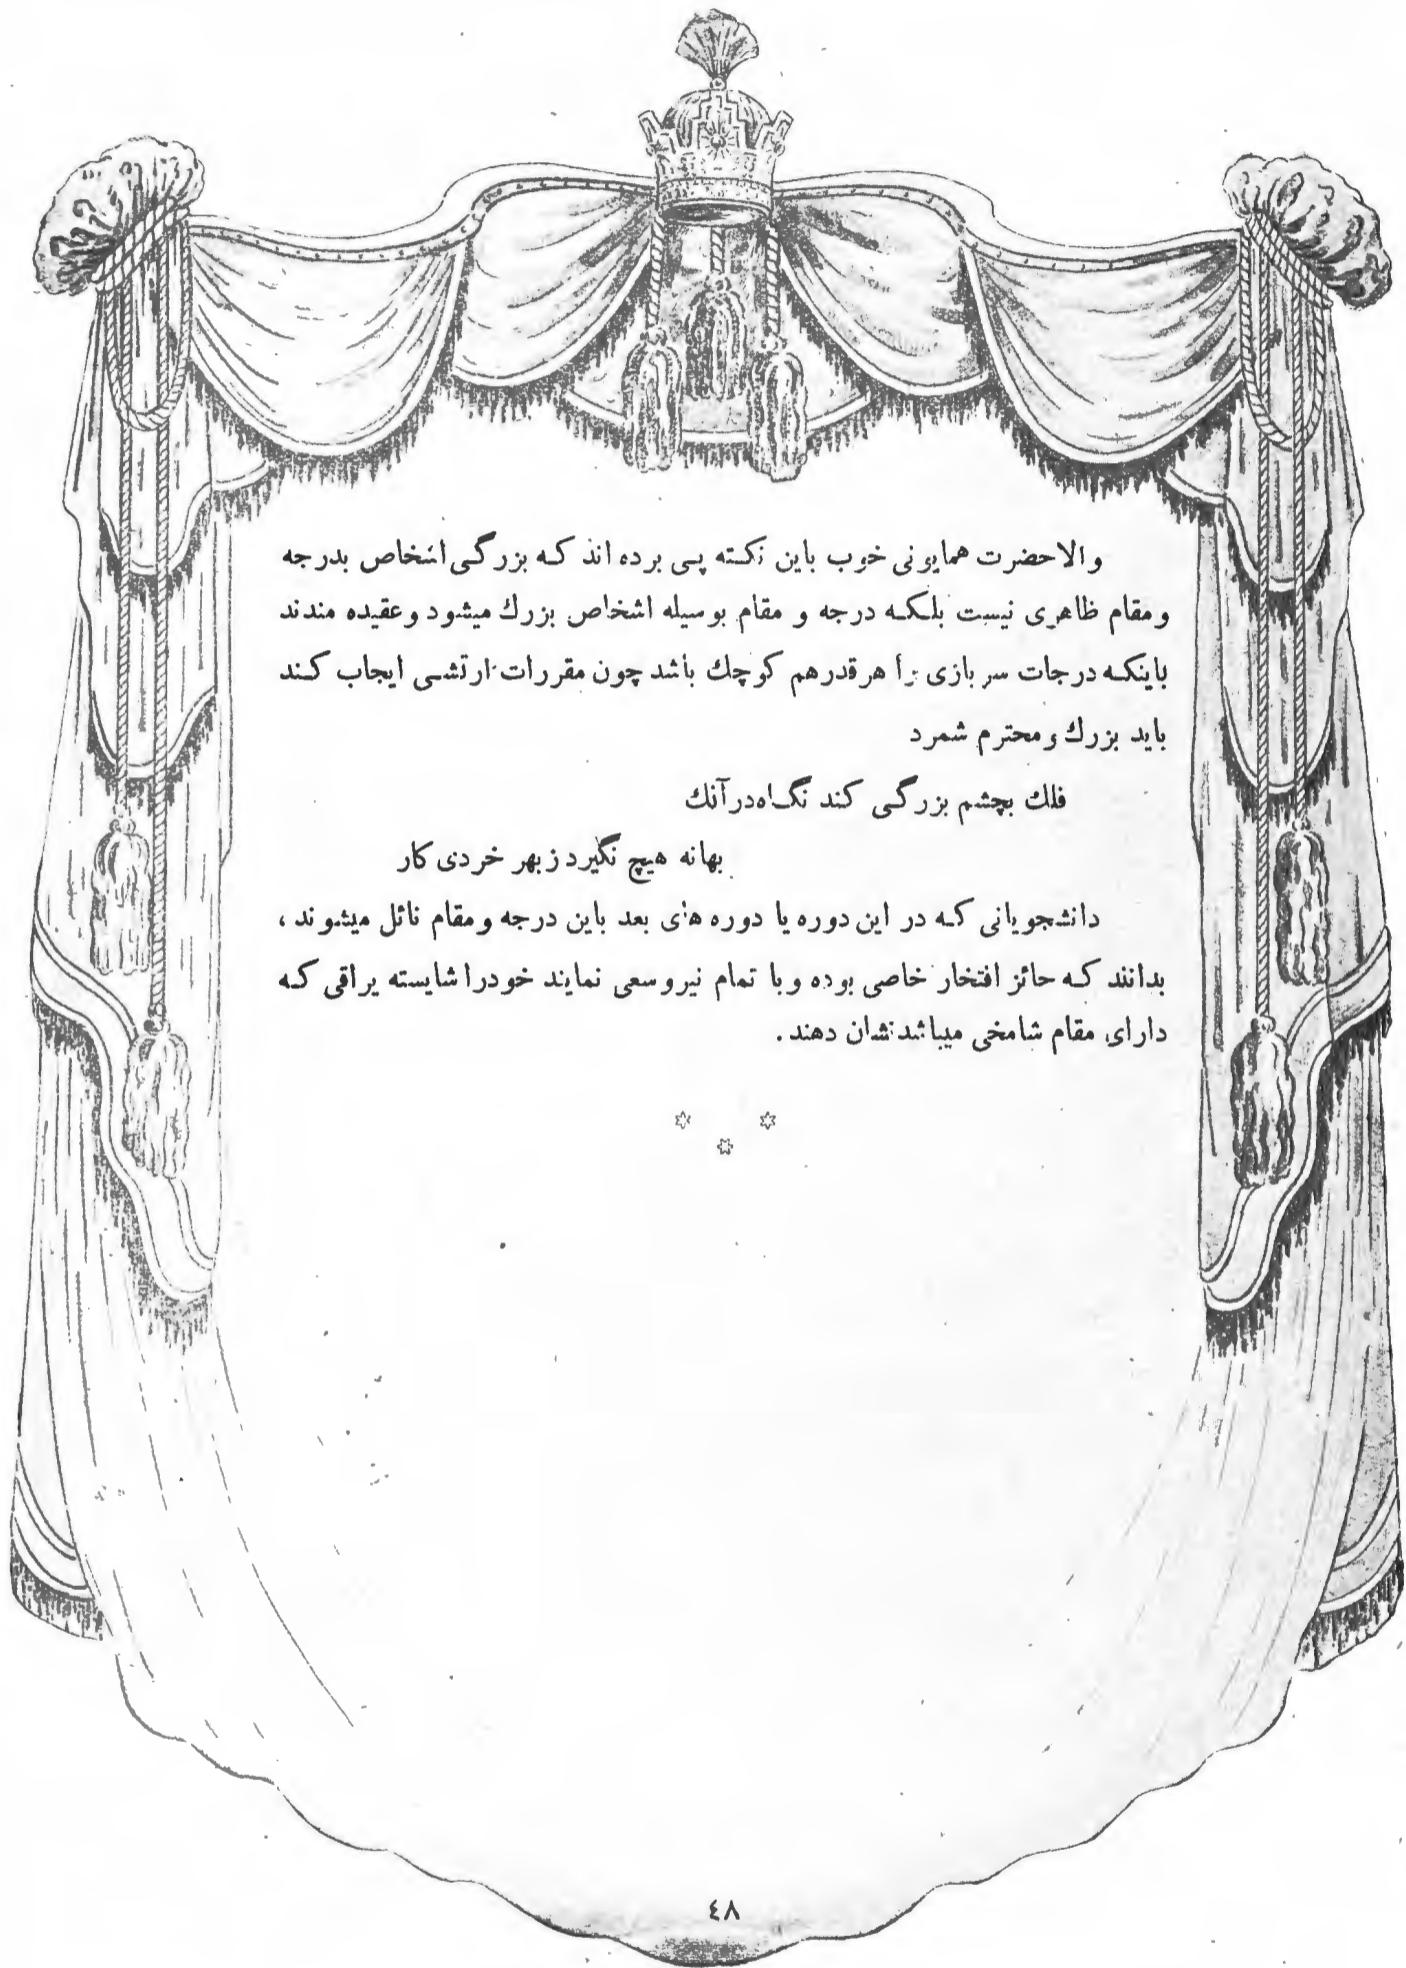 والاحضرت همایونی خوب باین نکته پی برده اند که بزرگی اشخاص بدرجه
و مقام ظاهری نیست بلکه درجه و مقام بوسیله اشخاص بزرك میشود و عقیده مندند
باینکه درجات سربازی را هر قدر هم کوچك باشد چون مقررات ارتشی ایجاب کند
باید بزرك و محترم شمرد
فلك بچشم بزرگی کند نگاه در آنك
بهانه هیچ نگیرد ز بهر خردی کار
دانشجویانی که در این دوره یا دوره های بعد باین درجه و مقام نائل میشوند ،
بدانند که حائز افتخار خاصی بوده و با تمام نیرو سعی نمایند خود را شایسته یراقی که
دارای مقام شامخی میباشد نشان دهند .
٤٨